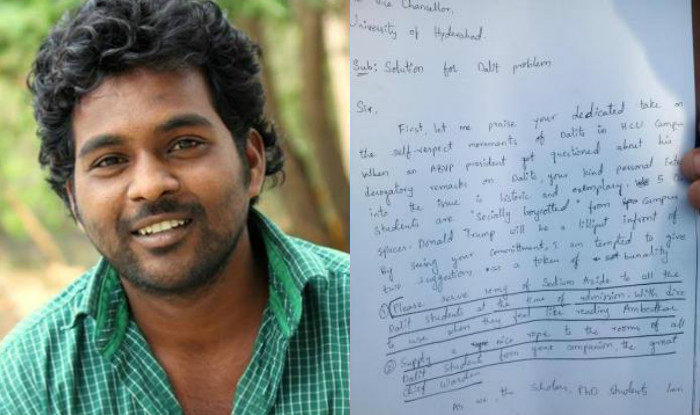 Vice Chancellor,
University of Hyderabad.
Sub: Solution for Dalit problem
Sir,
First, let me praise your dedicated take on
the self-respect movements of Dalits in HCU Campus
When an ABVP president got questioned about his
derogatory remarks on Dalits, your kind personal
into the issue is historic and exemplary. 5
students are "socially boycotted" from campus
spaces. Donald Trump will be a lilliput infront of
By seeing your commitment, I am tempted to give
two suggestions as a token of banality
① Please serve 10mg of Sodium Azide to all the
Dalit students at the time of admission. With
to use when they feel like reading Ambedkar
② Supply a nice rope to the rooms of all
Dalit students from your companion, the great
Chief Warden
As we, the scholars, PhD students